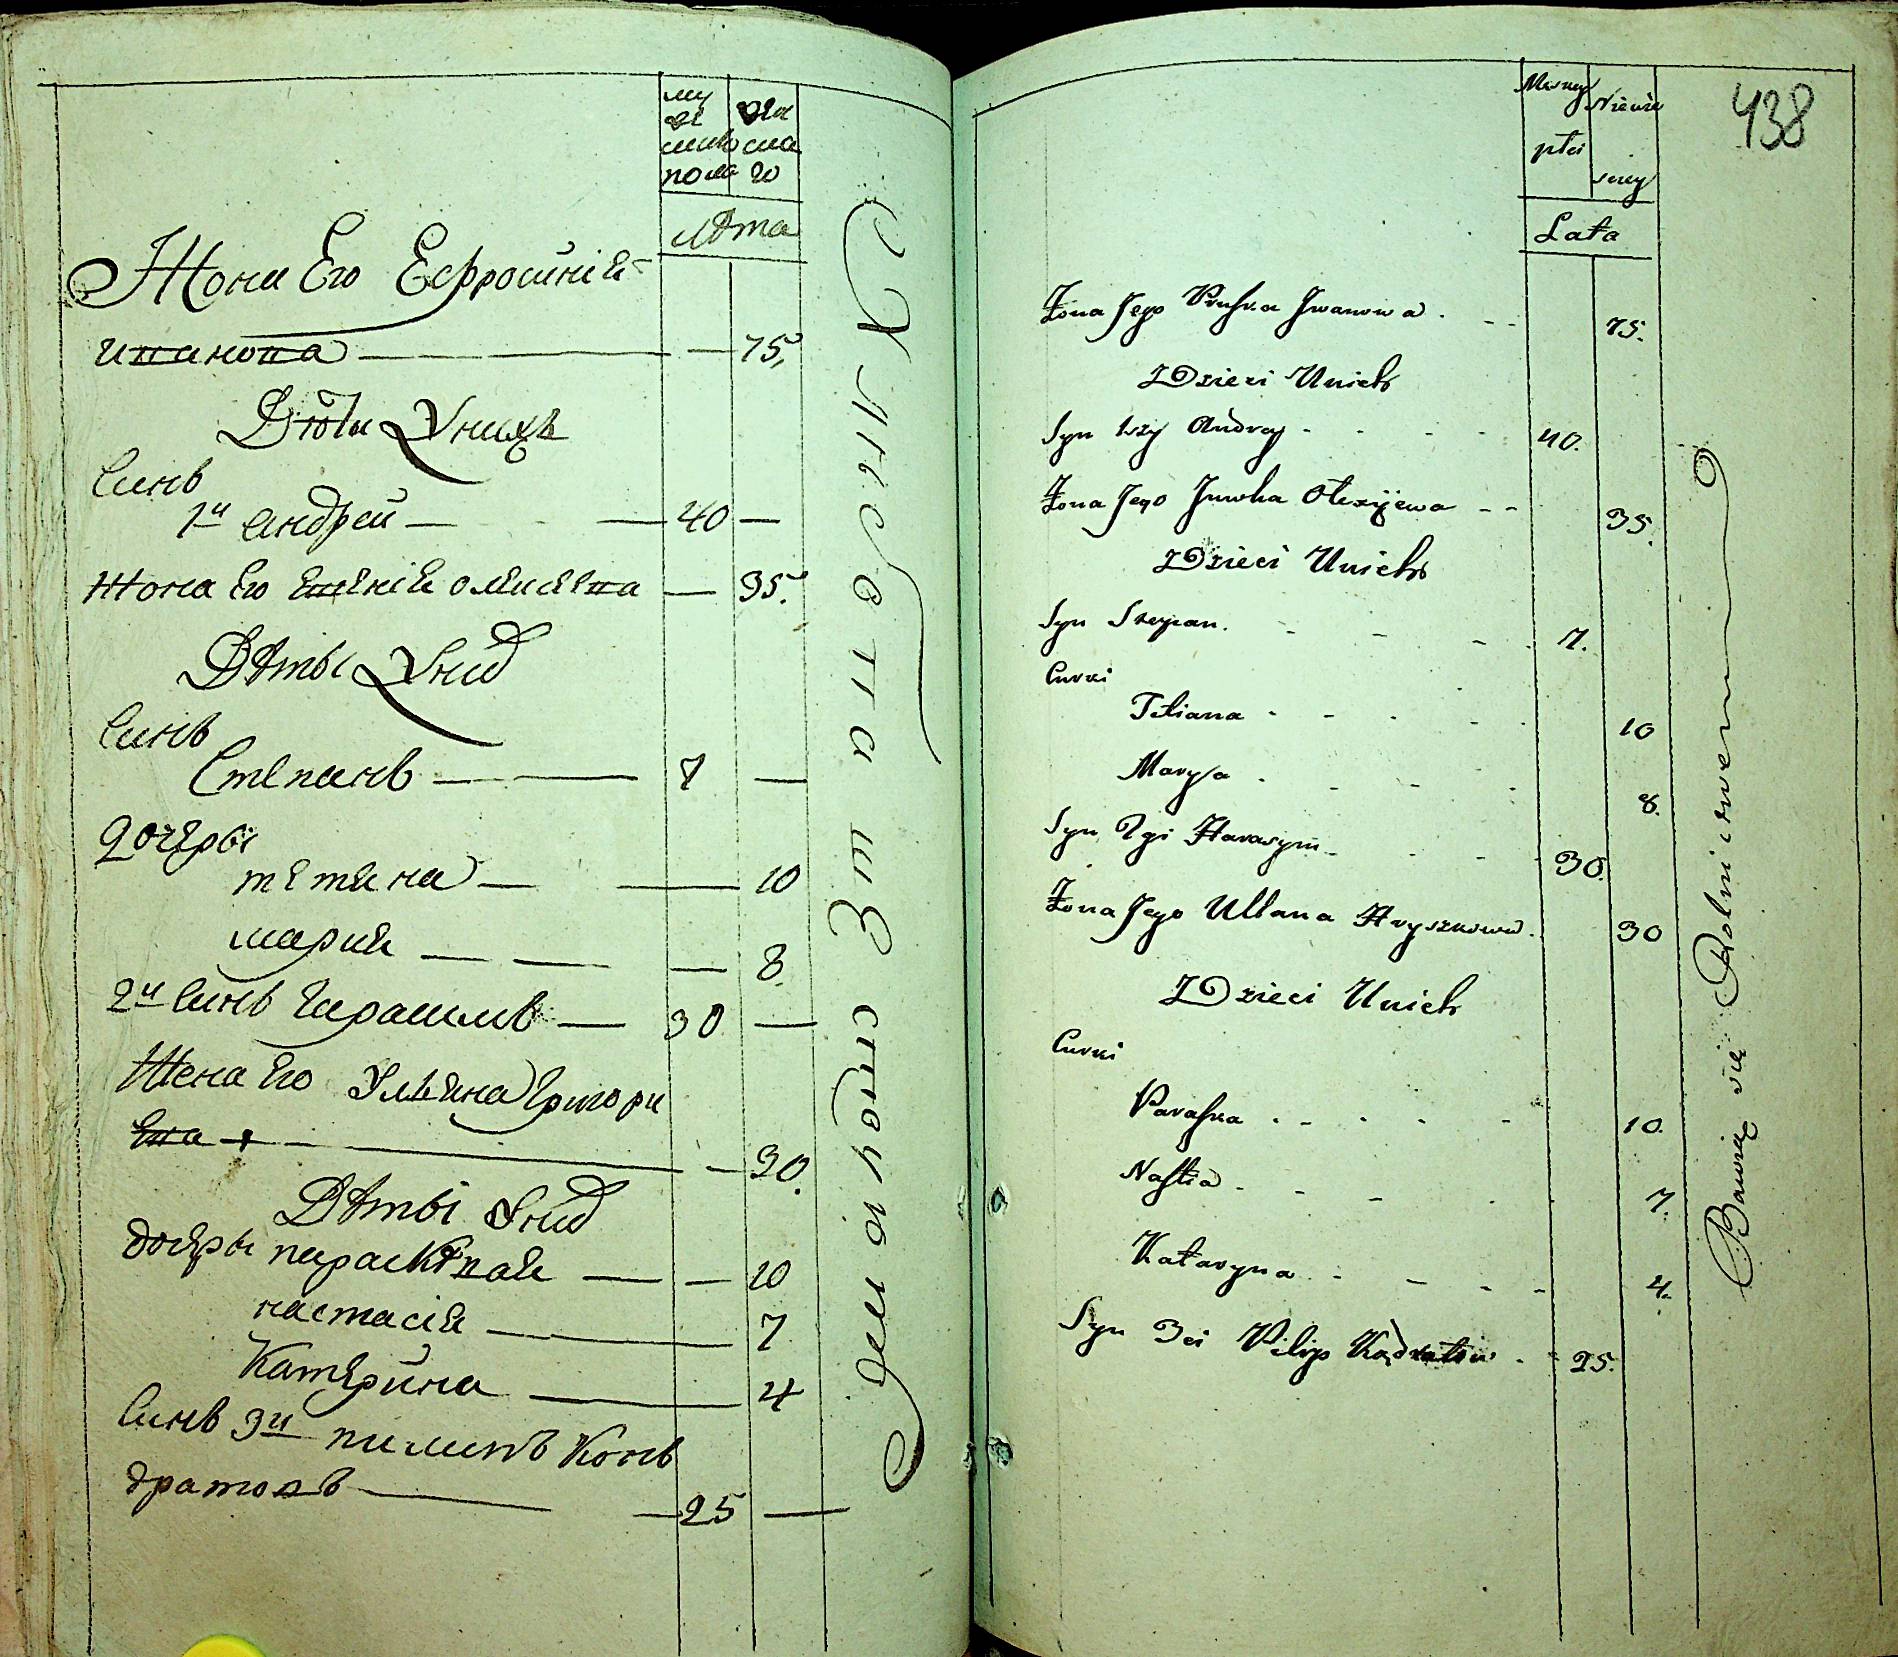 му жеска
же ска
пола го
Лѣта
Жона Его Ефросинія
иванова 75.
Дѣти Уних
Синъ
1й андрей 40
Жона Его Евгенія олисѣева 35.
Дѣтьі Уних
Синъ
Степанъ 7
Дочерьі
тетяна 10
марія 8.
2й Синъ Гарасимъ 30
Жена Его Ульяна Григори
ева 30.
Дѣтьі Уних
дочеры параскѣвая 10
настасія 7
Катерина 4
Синъ 3й пилипъ Конъ
дратовъ 25
438
Męzcy Niewie
płci sciey
Lata
Żona Jego Pruska Jwanowa 75.
Dzieci Unich
Syn 1szy Andrey 40.
Żona Jego Juwha Olexijewa 35.
Dzieci Unich
Syn Stepan. 7.
Curki
Tetiana 10
Marysa 8.
Syn 2gi Harasym 30.
Żona Jego Ullana Hryszkowa. 30
Dzieci Unich
Curki
Paraska 10.
Nastia 7.
Kataryna 4.
Syn 3ci Pilip Kądratów 25.
Bawią się Rolnictwem